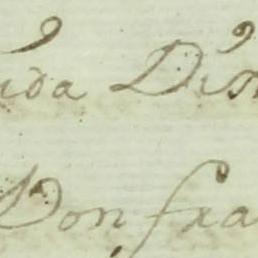 ida Dis
Don fra